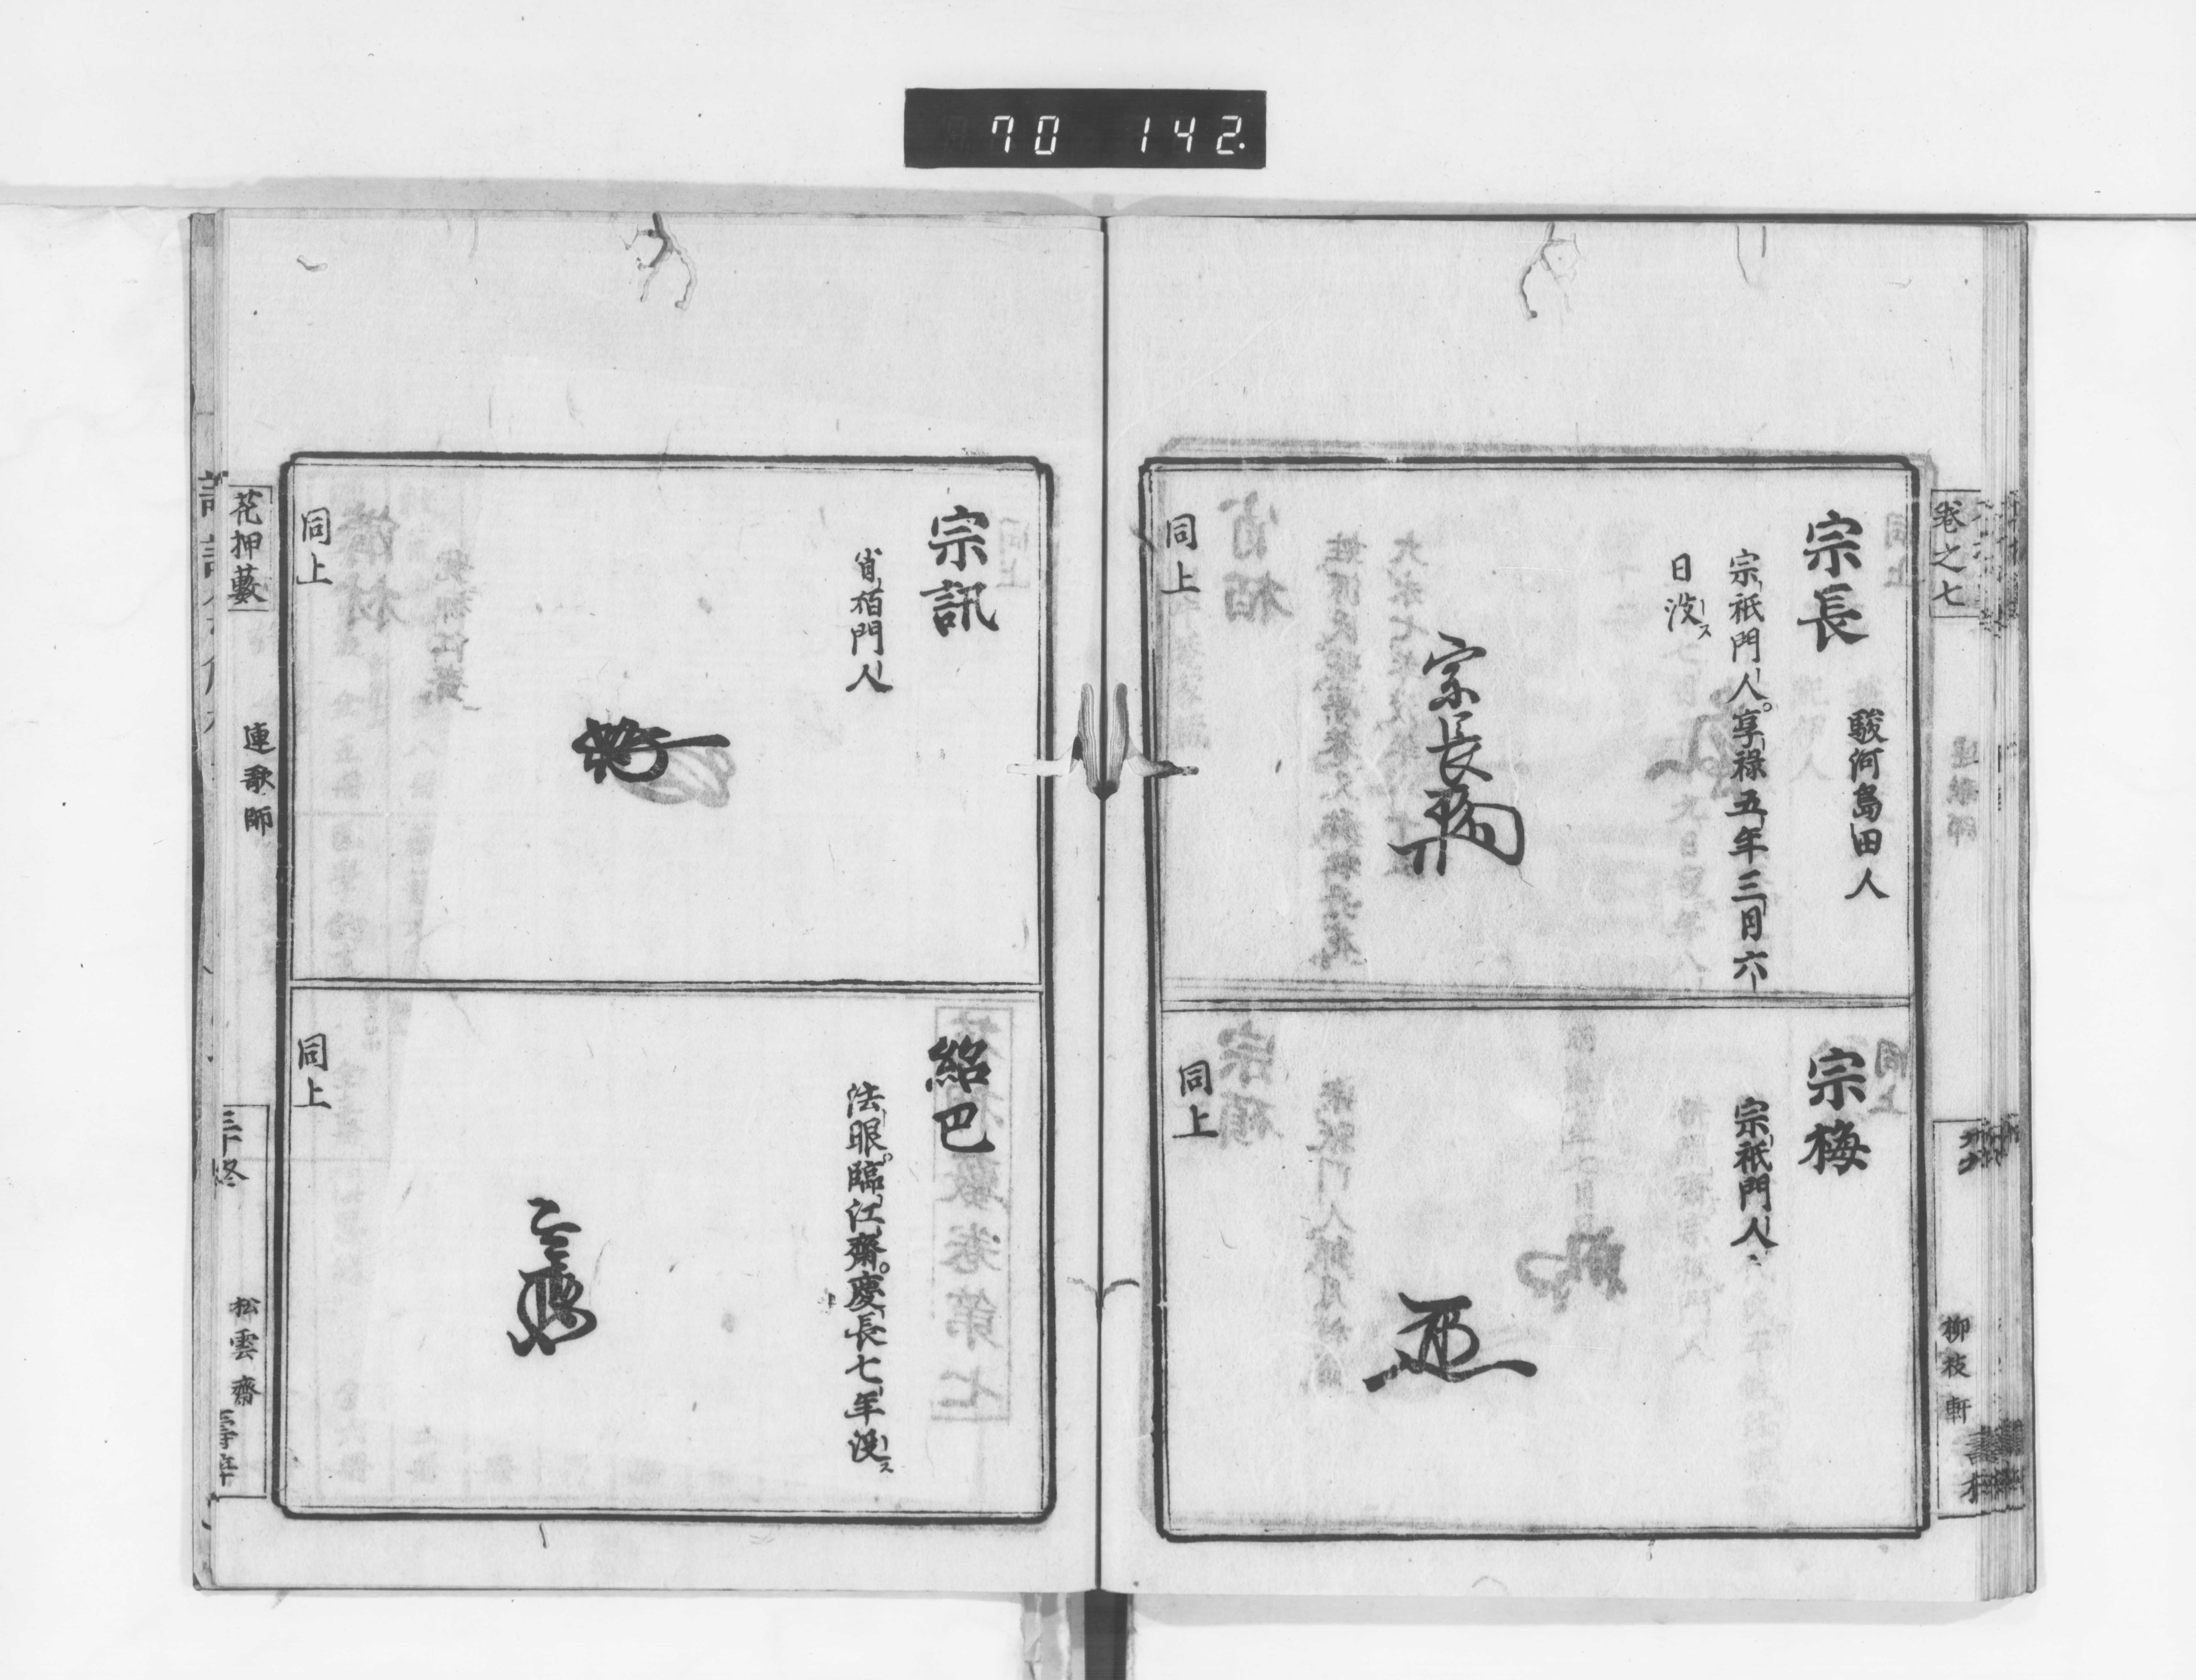 70 142.
卷之七
柳枝軒
宗長
駿河島田人
宗祇門人。享祿五年三月六
日没ス
宗長
同上
宗梅
宗祇門人
同上
宗訊
肖栢門人
同上
紹巴
法眼。臨江齋。慶長七年没ス
同上
花押藪
連歌師
三十終
松雲齋